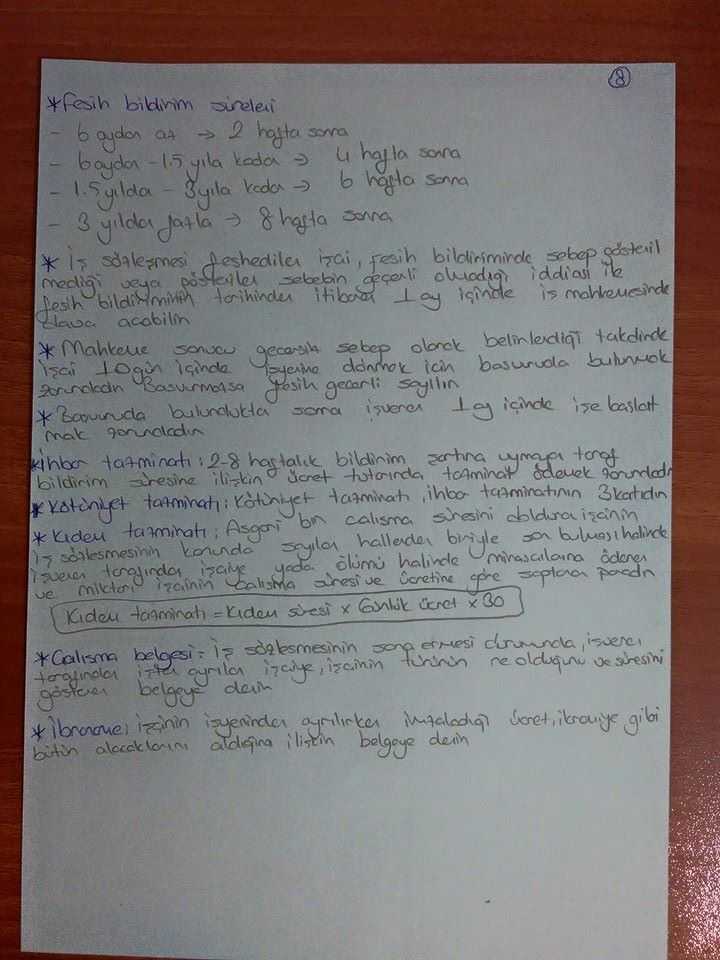 8
*Fesih bildirim süreleri
- 6 aydan az → 2 hafta sonra
- 6 aydan - 1.5 yıla kadar → 4 hafta sonra
- 1.5 yıldan - 3 yıla kadar → 6 hafta sonra
- 3 yıldan fazla → 8 hafta sonra
* İş sözleşmesi feshedilen işçi, fesih bildiriminde sebep gösteril
mediği veya gösterilen sebebin geçerli olmadığı iddiası ile
fesih bildiriminin tarihinden itibaren 1 ay içinde iş mahkemesinde
dava açabilir
*Mahkeme sonucu geçersiz sebep olarak belirlendiği takdirde
işçi 10 gün içinde işyerine dönmek için başvuruda bulunmak
zorundadır Başvurmazsa fesih geçerli sayılır
*Başvuruda bulunduktan sonra işveren 1 ay içinde işe başlat
mak zorundadır
*İhbar tazminatı: 2-8 haftalık bildirim şartına uymayan taraf
bildirim süresine ilişkin ücret tutarında tazminat ödemek zorundadır
*Kötüniyet tazminatı: Kötüniyet tazminatı, ihbar tazminatının 3 katıdır
*Kıdem tazminatı: Asgari bir çalışma süresini dolduran işçinin
iş sözleşmesinin kanunda sayılan hallerden biriyle son bulması halinde
işveren tarafından işçiye yada ölümü halinde mirasçılarına ödenen
ve miktarı işçinin çalışma süresi ve ücretine göre saptanan paradır
Kıdem tazminatı = Kıdem süresi x Günlük ücret x 30
*Çalışma belgesi = iş sözleşmesinin sona ermesi durumunda, işveren
tarafından işten ayrılan işçiye, işçinin türünün ne olduğunu ve süresini
gösteren belgeye denir
*İbraname: işçinin işyerinden ayrılırken imzaladığı ücret, ikramiye gibi
bütün alacaklarını aldığına ilişkin belgeye denir